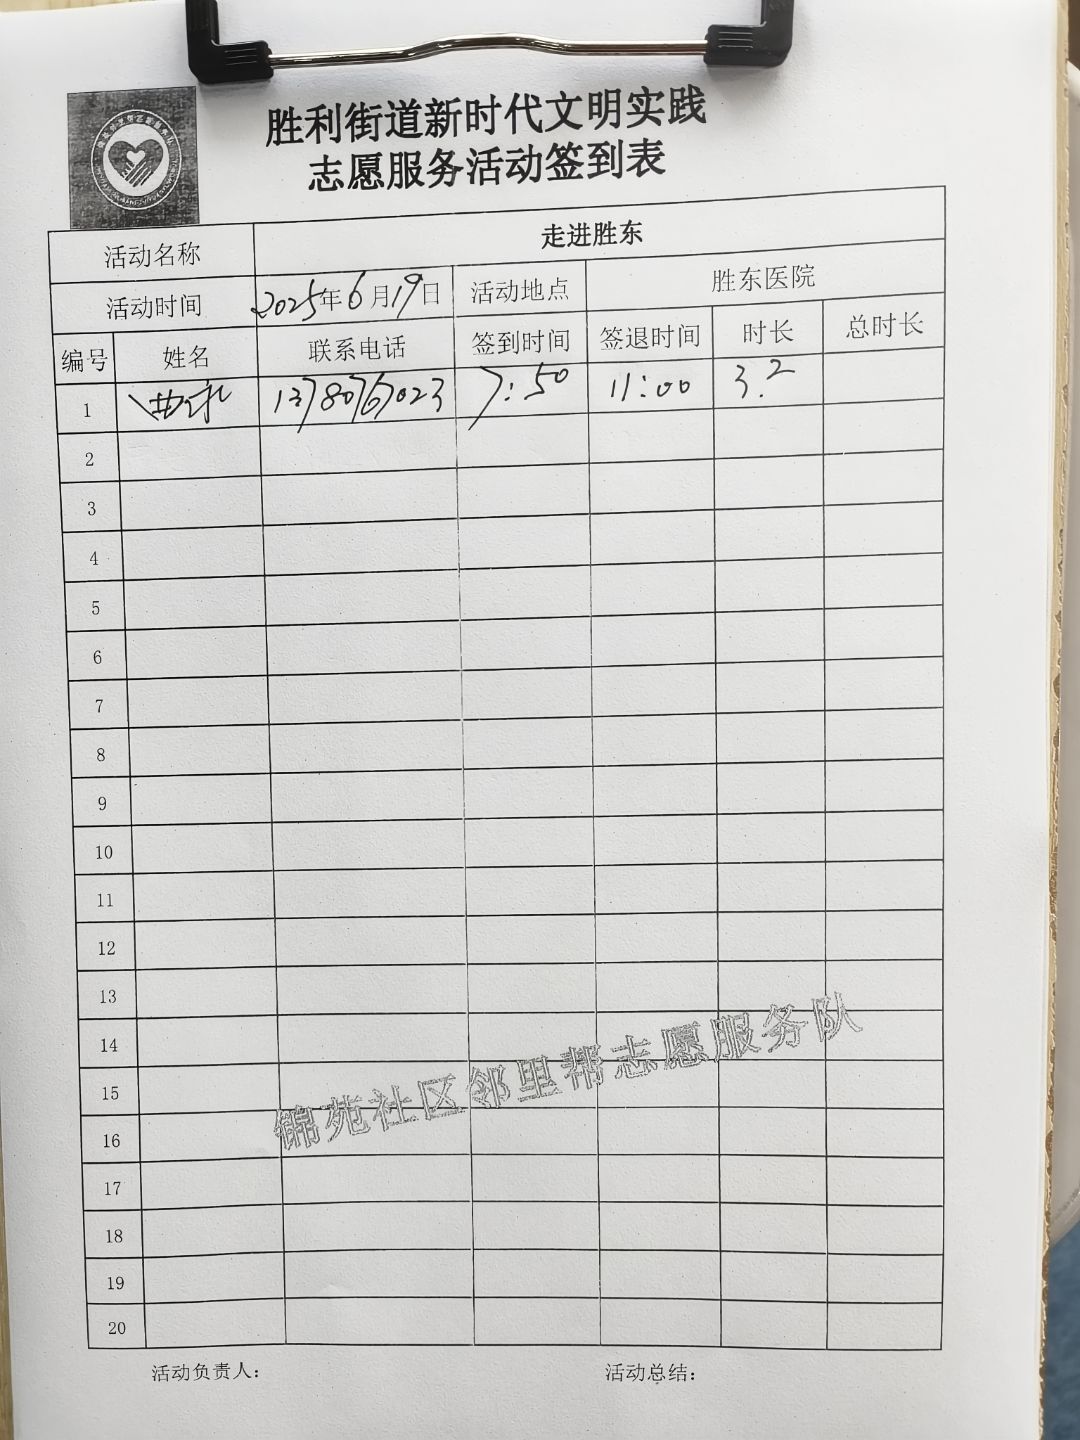 胜利街道新时代文明实践
志愿服务活动签到表
活动名称 走进胜东
活动时间 2025年6月19日 活动地点 胜东医院
编号 姓名 联系电话 签到时间 签退时间 时长 总时长
1 7:50 11:00 3.2
2
3
4
5
6
7
8
9
10
11
12
13
14
15
16
17
18
19
20
锦苑社区邻里帮志愿服务队
活动负责人： 活动总结：